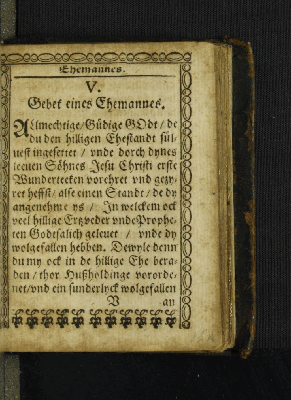 Ehemannes.
V.
Gebet eines Ehemannes.
ALmechtige/Güdige GOdt/de
du den hilligen Ehestandt sül-
uest ingesettet / vnde dorch dynes
leeuen Söhnes Jesu Christi erste
Wunderteeken vorehret vnd gezy-
ret heffst/ alse einen Standt/ de dy
angenehme ys / In welckem ock
veel hillige Ertzveder vnde Prophe-
ten Godtsalich geleuet / vnde dy
wolgefallen hebben. Dewyle denn
du my ock in de hillige Ehe bera-
den / thor Hußholdinge verorde-
net/vnd ein sunderlyck wolgefallen
V an